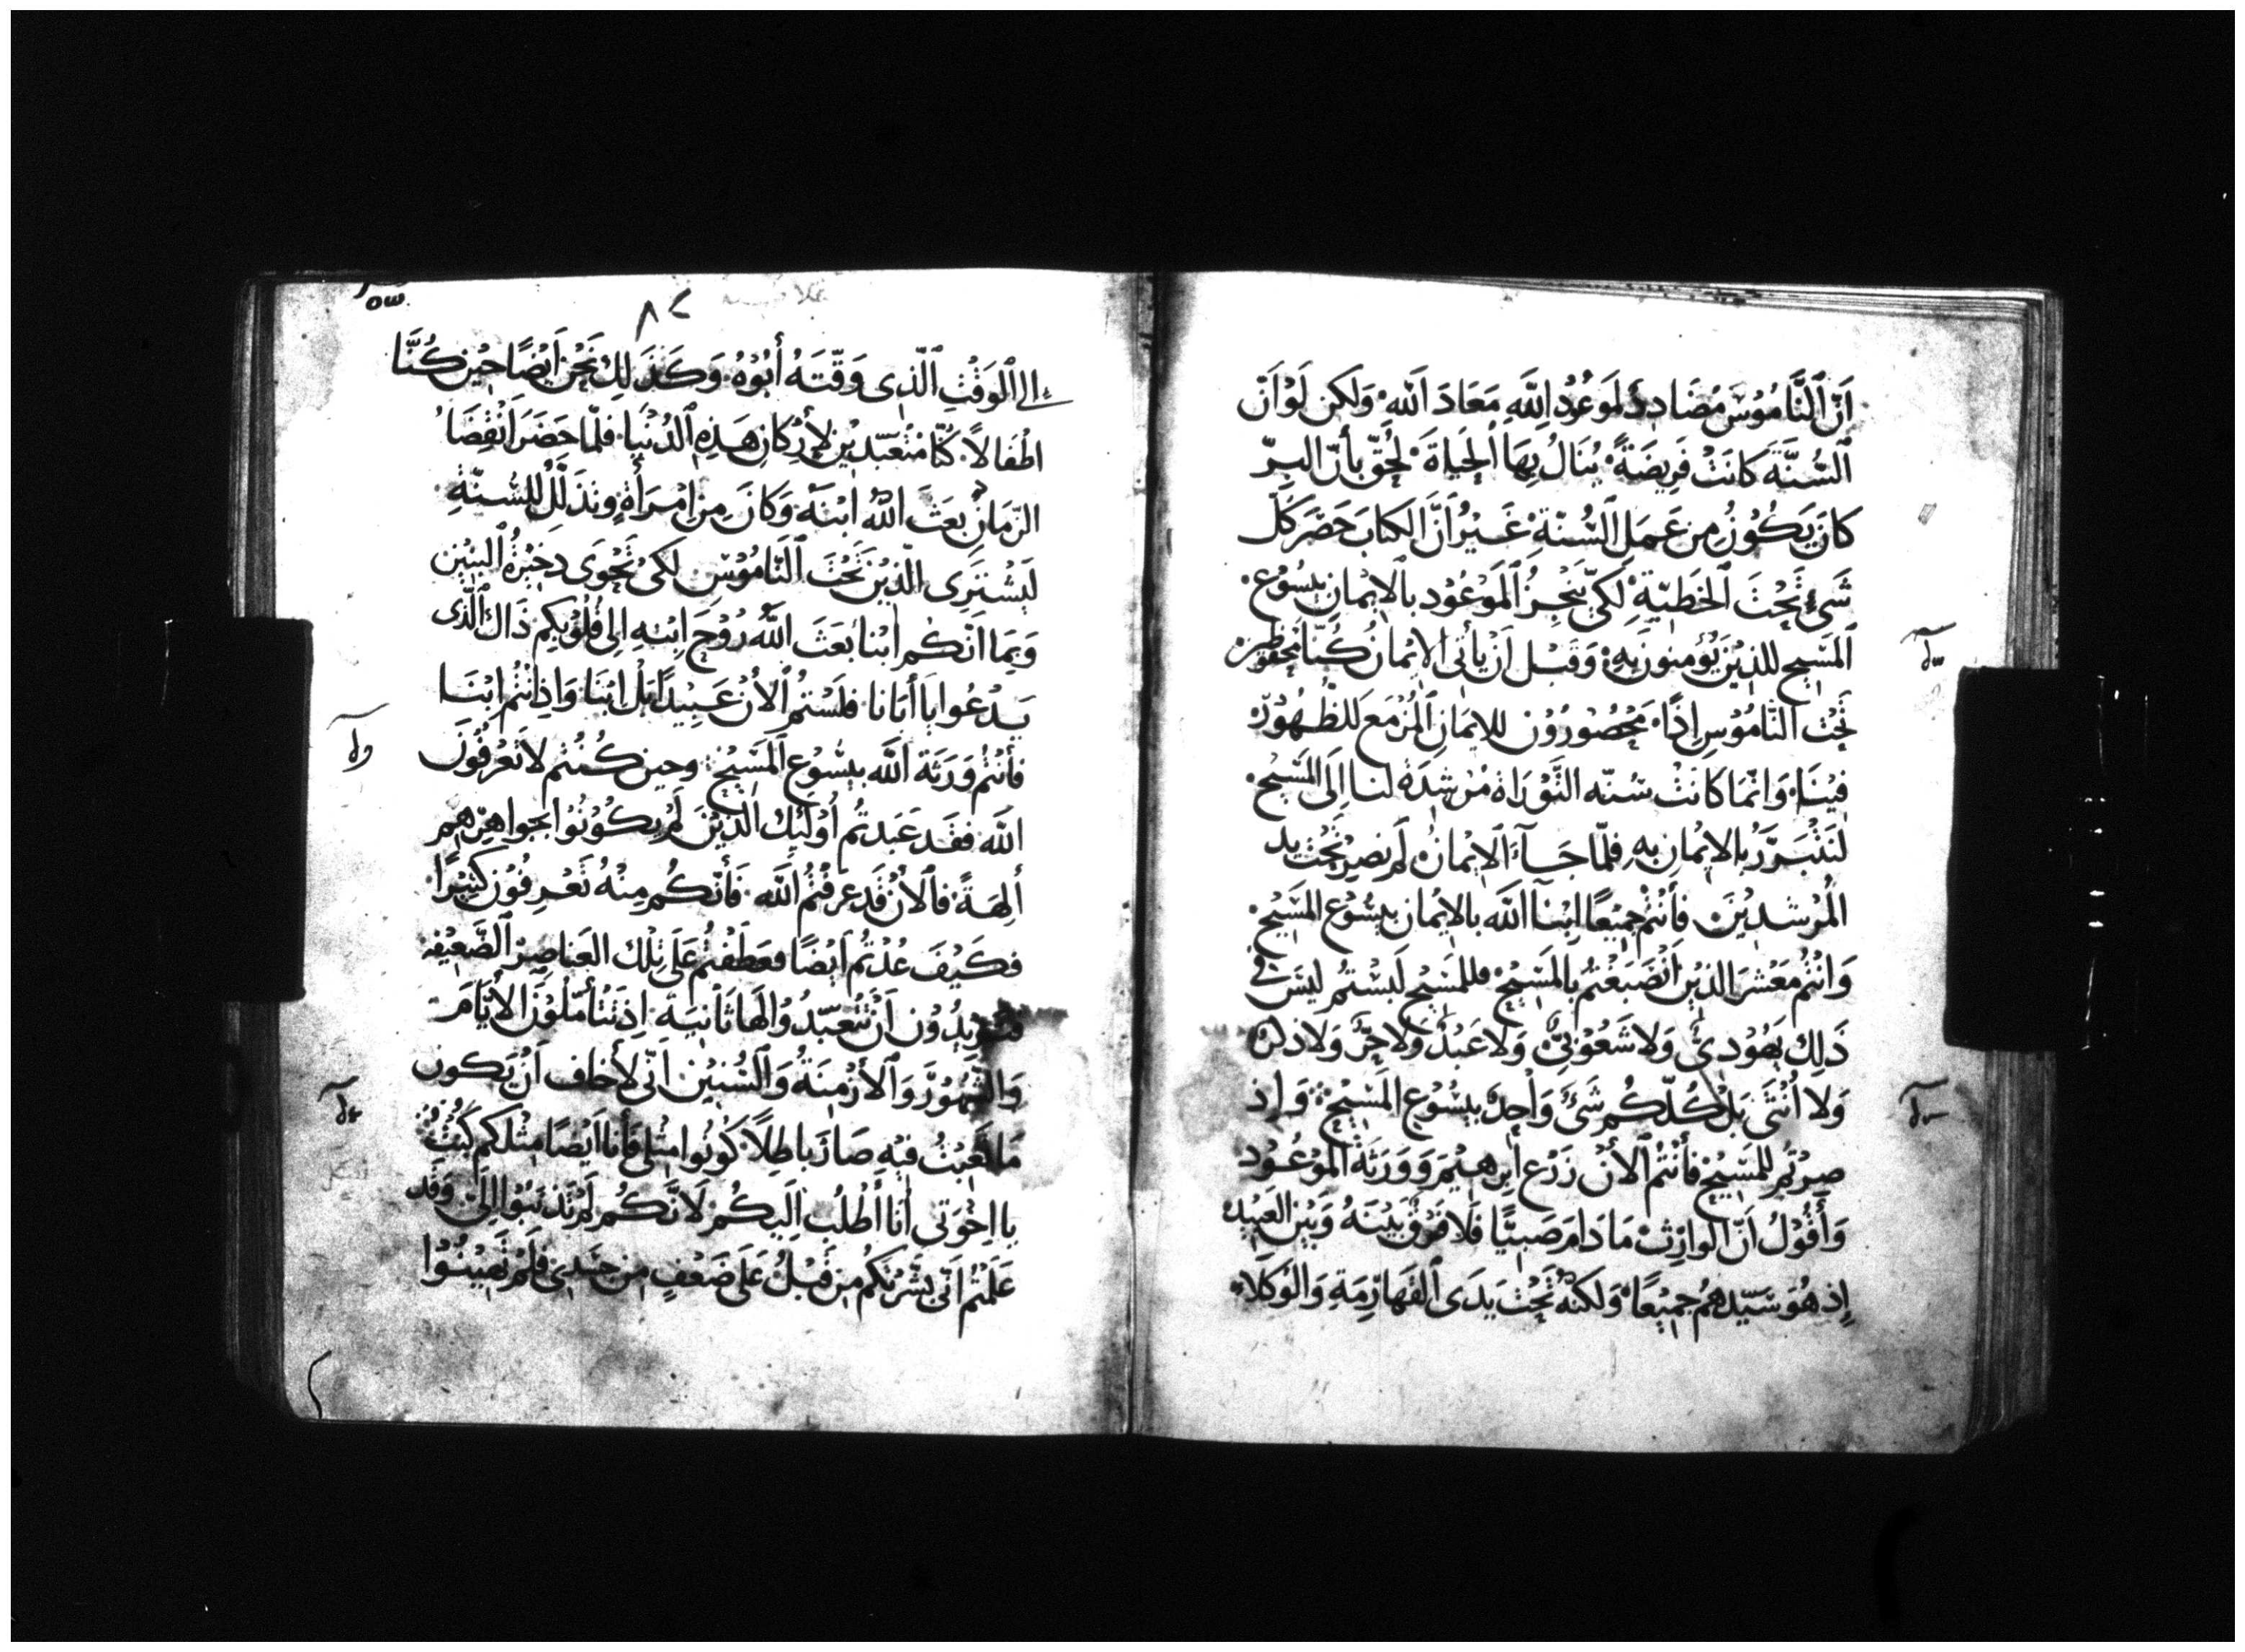 اَنَّ ٱلنَّامُوْسَ مُضَادِدٌ لِمَوْعُوْدِ ٱللَّهِ مَعَادَ ٱللَّه وَلَكِن لَوْ اَنّ
ٱلسُّنَّةَ كَانَتْ فَرِيضَةً يُنَالُ بِهَا ٱلْحَيَاةَ لَحُقّ بأنّ البِرّ
كانَ يَكُوْنُ مِن عَمَلِ ٱلسُّنّةِ غَيْرُ اَنَّ الكتابَ حَصَر كُلّ
شَىْءٍ تَحْتَ ٱلخَطِيّةِ لِكَىّ يَنْجِزُ ٱلمَوْعُوْد بالاِيْمَانِ بيسُوْع
ٱلمَسِيح للذِيْنَ يُؤمِنونَ بِهِ وَقَبْل اَنْ يأتِىَ الاِيْمانُ كُنّا مَحْفُوْظِيْنَ
تَحْت النّامُوْسِ اِذًا مَحْصُوْرُوْن للاِيمَانِ ٱلمُزْمَع للظُهُوْرِ
فِيْنَا وَاِنّمَا كانَتْ سُنّه التَّوْرَاة مُرْشِدَةً لنا اِلَى المَسِيح
لنَتْبَرَّرُ بالاِيْمَانِ بهِ فلمّا جَآءَ الاِيْمَانُ لَم نَصِيْر تَحْت يد
المُرْشدِيْنَ فأنْتُمْ جميْعًا ابْنآ ٱللّه بالاِيْمان بيسُوْع المَسِيْح
وَانْتُمْ مَعْشرَ الذِيْنَ اَنْصَبَغْتُم بالمَسِيْحِ فللمَسِيْح لَبِسْتُم ليْسَ فى
ذَلِك يَهُوْدِىٌّ وَلا شَعُوْبِىٌّ وَلا عَبْدٌ وَلا حُرٌّ وَلا ذكرٌ
وَلا اُنْثَى بَلْ كُلّكُم شَىْءٌ وَاحِدٌ بيسُوْعِ المَسِيْحِ وَاِذ
صِرْتُم للمَسِيْحِ فأَنْتُمْ ٱلأَنْ زَرْع اَبْرَهِيْمَ وَوَرَثَة المَوْعُوْد
وَأقُوْلُ اَنّ الوَارِث مَا دَامَ صَبِيًّا فَلَا فَرْقٌ بَيْنَهُ وَبَيْن العَبيْد
اِذ هُوَ سَيّدهُم جميْعًا وَلكنّهُ تَحْت يَدَى ٱلقهَارِمَةِ وَالوُكَلَاءِ
٨٢
اِلى ٱلوَقْتِ ٱلّذِى وَقّتَهُ أَبُوْهُ وَكَذَلِك نَحْن اَيْضًا حِيْن كُنَّا
اطْفَالاً كُنّا مُتَعَبّدِيْن لأَرْكانِ هَذِهِ ٱلدُنْيَا فلمّا حَضَرَ اَنْقِضَا
الزّمَانِ بَعَثَ ٱللّه ابْنَهُ وَكَانَ مِن اِمْرَأةٍ وتذَلّلَ للسُّنّةِ
لَيْشتَرِى الّذِيْنَ تَحْت ٱلنّامُوْسِ لكىْ نَحْوَى دخِيْرَةُ البَنِيْن
وَبمَا اَنّكُم اَبْنا بَعَثَ ٱللَّه رُوْحَ اِبْنهِ اِلى قُلُوْبِكُم ذَاك ٱلّذى
يَدْعُوا يا أَبَانا فلَسْتُمْ ٱلأنْ عَبِيْدًا بَلْ ابْنَا وَاِذ اَنْتُمْ ابْنَا
فأنْتُمْ وَرَثَة ٱللّه بيَسُوْع ٱلمَسِيْحِ وحِين كُنْتُم لا تَعْرِفُوْنَ
اللّه فقَد عَبَدتُم أوْلئِك الّذِيْنَ لَم يكُوْنُوْا بجَواهِرهِم
ألِهَةً فَٱلأَنْ قَدْ عرَفْتُمْ ٱللّه فأَنّكُم مِنْهُ تَعْرِفُوْن كثِيْرًا
فكَيْفَ عُدْتُمْ اَيْضًا فعَطَفْتُم عَلَى تِلْك العَناصِرْ الضَّعِيْفه
وَتُريْدُوْن اَنْ تَتَعبّدُوْا لهَا ثَانِيَة اِذ تَتَأمّلُوْنَ الأَيّامَ
وَالشُهُوْرَ وَٱلأَزْمِنَةُ وَٱلسُنِيْن اَنّى لأَخاف اَنْ يَكون
مَا تَعِبْتُ فيْهِ صَارَ باطِلاً كُوْنُوا مِثْلى فأَنا اَيْضًا مِثْلكم كُنْتُ
يا اِخْوَتى أنا أطْلُب اِلَيكُم لَانّكُم لَم تذْنبُوْا اِلىَّ وَقَد
عَلمْتُم اَنّى بَشّرْتكُم مِن قَبْلُ عَلَى ضَعْفٍ مِن جَسَدى فلَم تُهِيْنُوْا